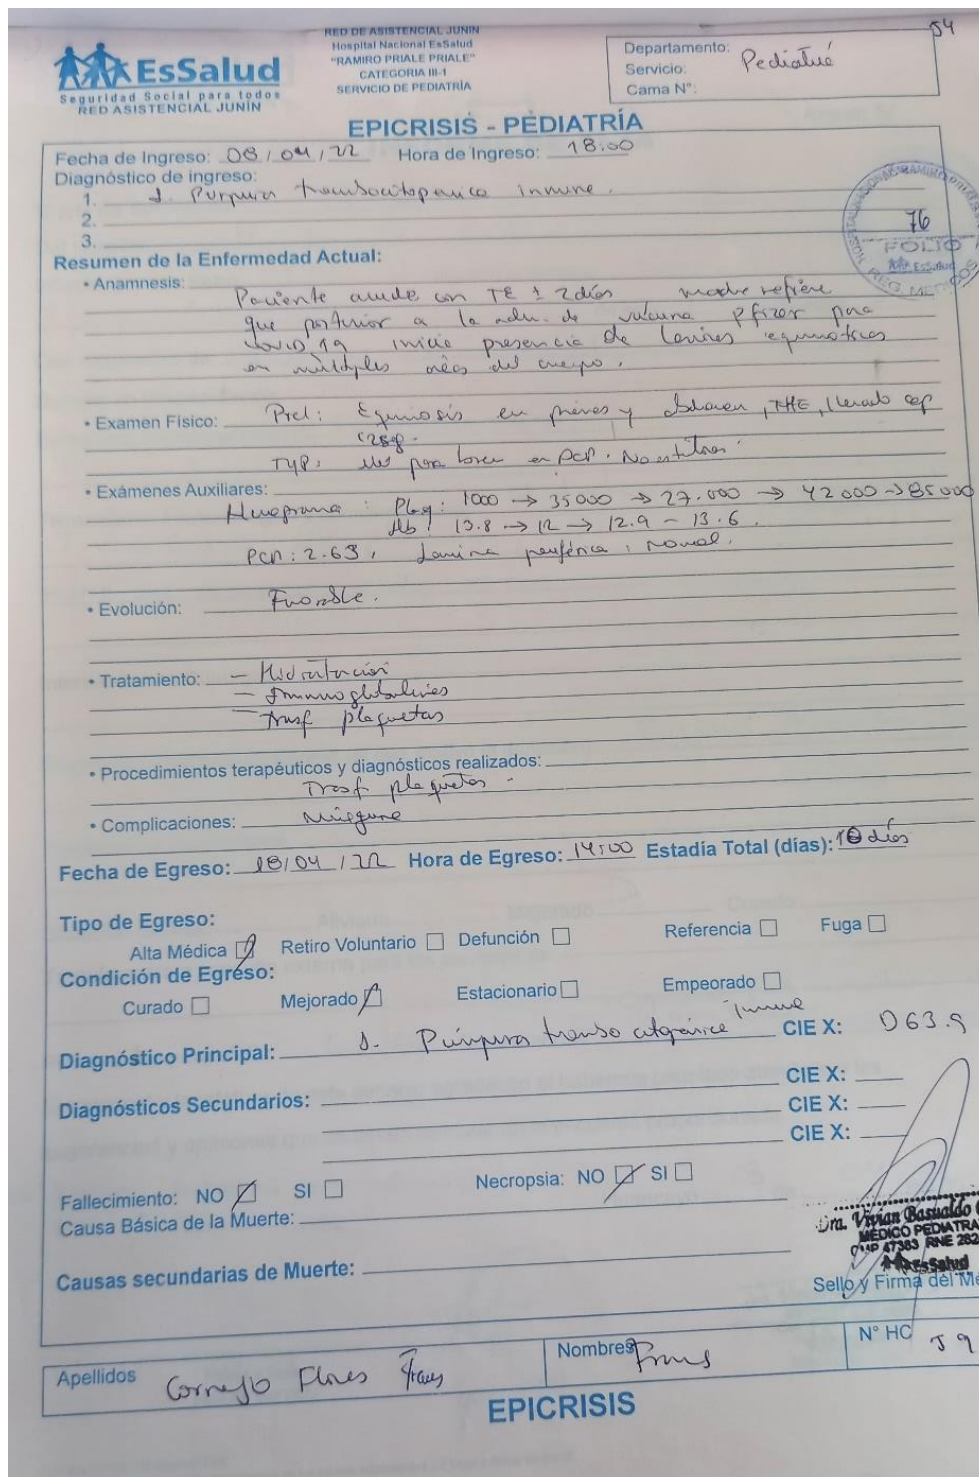 54
RED DE ASISTENCIAL JUNIN
Hospital Nacional EsSalud
"RAMIRO PRIALE PRIALE"
CATEGORIA III-1
SERVICIO DE PEDIATRÍA
EsSalud
Seguridad Social para todos
RED ASISTENCIAL JUNÍN
Departamento:
Servicio: Pediatría
Cama N°:
EPICRISIS - PEDIATRÍA
Fecha de Ingreso: 08/04/22 Hora de Ingreso: 18:00
Diagnóstico de ingreso:
1. Purpura trombocitopenica inmune.
2.
3.
76
FOLIO
EsSalud
Resumen de la Enfermedad Actual:
• Anamnesis: Paciente acude con TE ± 2 días madre refiere
que posterior a la adm. de vacuna Pfizer para
COVID 19 inicia presencia de lesiones equimoticas
en múltiples del cuerpo.
• Examen Físico: Piel: Equimosis en y abdomen, THE, llenado cap
TyP: en ACP. No
• Exámenes Auxiliares:
Hemograma: Plaq: 1000 → 35000 → 27.000 → 42000 → 85000
Hb: 13.8 → 12 → 12.9 - 13.6.
PCR: 2.63, Lamina periférica: normal.
• Evolución: Favorable.
• Tratamiento: - Hidratación
- Inmunoglobulinas
- Trasf plaquetas
• Procedimientos terapéuticos y diagnósticos realizados:
Trasf plaquetas -
• Complicaciones: Ninguna
Fecha de Egreso: 18/04/22 Hora de Egreso: 14:00 Estadía Total (días): 10 días
Tipo de Egreso:
Alta Médica Retiro Voluntario Defunción Referencia Fuga
Condición de Egreso:
Curado Mejorado Estacionario Empeorado
Diagnóstico Principal: 1. Púrpura trombocitopénica inmune CIE X: D63.9
CIE X:
Diagnósticos Secundarios: CIE X:
CIE X:
Fallecimiento: NO SI Necropsia: NO SI
Causa Básica de la Muerte:
Causas secundarias de Muerte:
Dra. Vivian Basualdo
MÉDICO PEDIATRA
CMP 47383 RNE 282
EsSalud
Sello y Firma del Mé
Apellidos Cornejo Flores Frans Nombres Frans N° HC 79
EPICRISIS